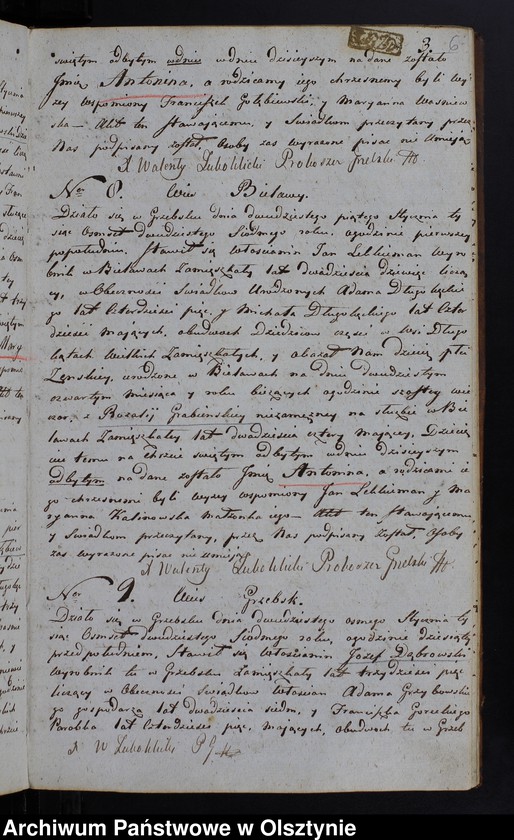 3. 6
świętym odbytym wdniu wdniu dzisieyszym nadane zostało
Jmię Antonina, a rodzicami iego chrzesnemi byli wy
zey wspomiony Franciszek Gołębiewski, y Maryanna Wasniew
ska – Akt ten Stawaiącemu, y Swiadkom przeczytany przez
Nas podpisany został Osoby zas wyrażone pisac nie umieją
X Walenty Lubokhicki Proboszcz Grzebski
Nro 8. Wies Bielawy.
Działo się w Grzebsku dnia dwudziestego piątego Stycznia ty
siąc Osmset dwudziestego Siodmego roku, ogodzinie pierwszy
popołudniu, Stawił się włoscianin Jan wyro
bnik w Bielawach Zamięszkały lat dwadzieścia dziewięc liczą
cy, w Obecnosci Swiadkow Urodzonych Adama Długołęckie
go lat Czterdzieści pięc, y Michała Długołęckiego lat Czter
dziesci maiących, obudwoch Dziedzicow częsci w wsi Długo
łękach Wielkich Zamięszkałych, y okazał Nam dziecię płci
Zenskiey, urodzone w Bielawach na dniu dwudziestym
czwartym miesiąca y roku bieżących ogodzinie szostey wie
czor, z Rozalij Grabinskiey niezamęzney na służbie w Bie
lawach Zamięszkałey, lat dwadziescia cztery maiącey, Dziecię
ciu temu na Chrzcie swiętym odbytym wdniu dzisieyszym
odbytym nadane zostało Jmię Antonina, a rodzicami ie
go chrzesnemi byli wyzey wspomiony Jan y Ma
ryanna Kalinowska małzonka iego – Akt ten Stawaiącemu,
y Swiadkom przeczytany, przez Nas podpisany został, Osoby
zas wyrazone pisac nie umieją
X Walenty Lubokhicki Proboszcz Grzebski
Nro 9. Wies Grzebsk.
Działo się w Grzebsku dnia dwudziestego osmego Stycznia ty
siąc Osmset dwudziestego Siodmego roku, ogodzinie dziesiąty
przed południem, Stawił się włoscianin Jozef Dąbrowski
wyrobnik tu w Grzebsku Zamięszkały lat trzydziesci pięc
liczący w Obecnosci Swiadkow Włoscian Adama Grzybowskie
go gospodarza lat dwadziescia siedm, y Franciszka Goreckiego
Parobka lat Czterdziesci pięc, maiących, obudwoch tu w Grzeb
X W Lubokhicki P G
Archiwum Państwowe w Olsztynie